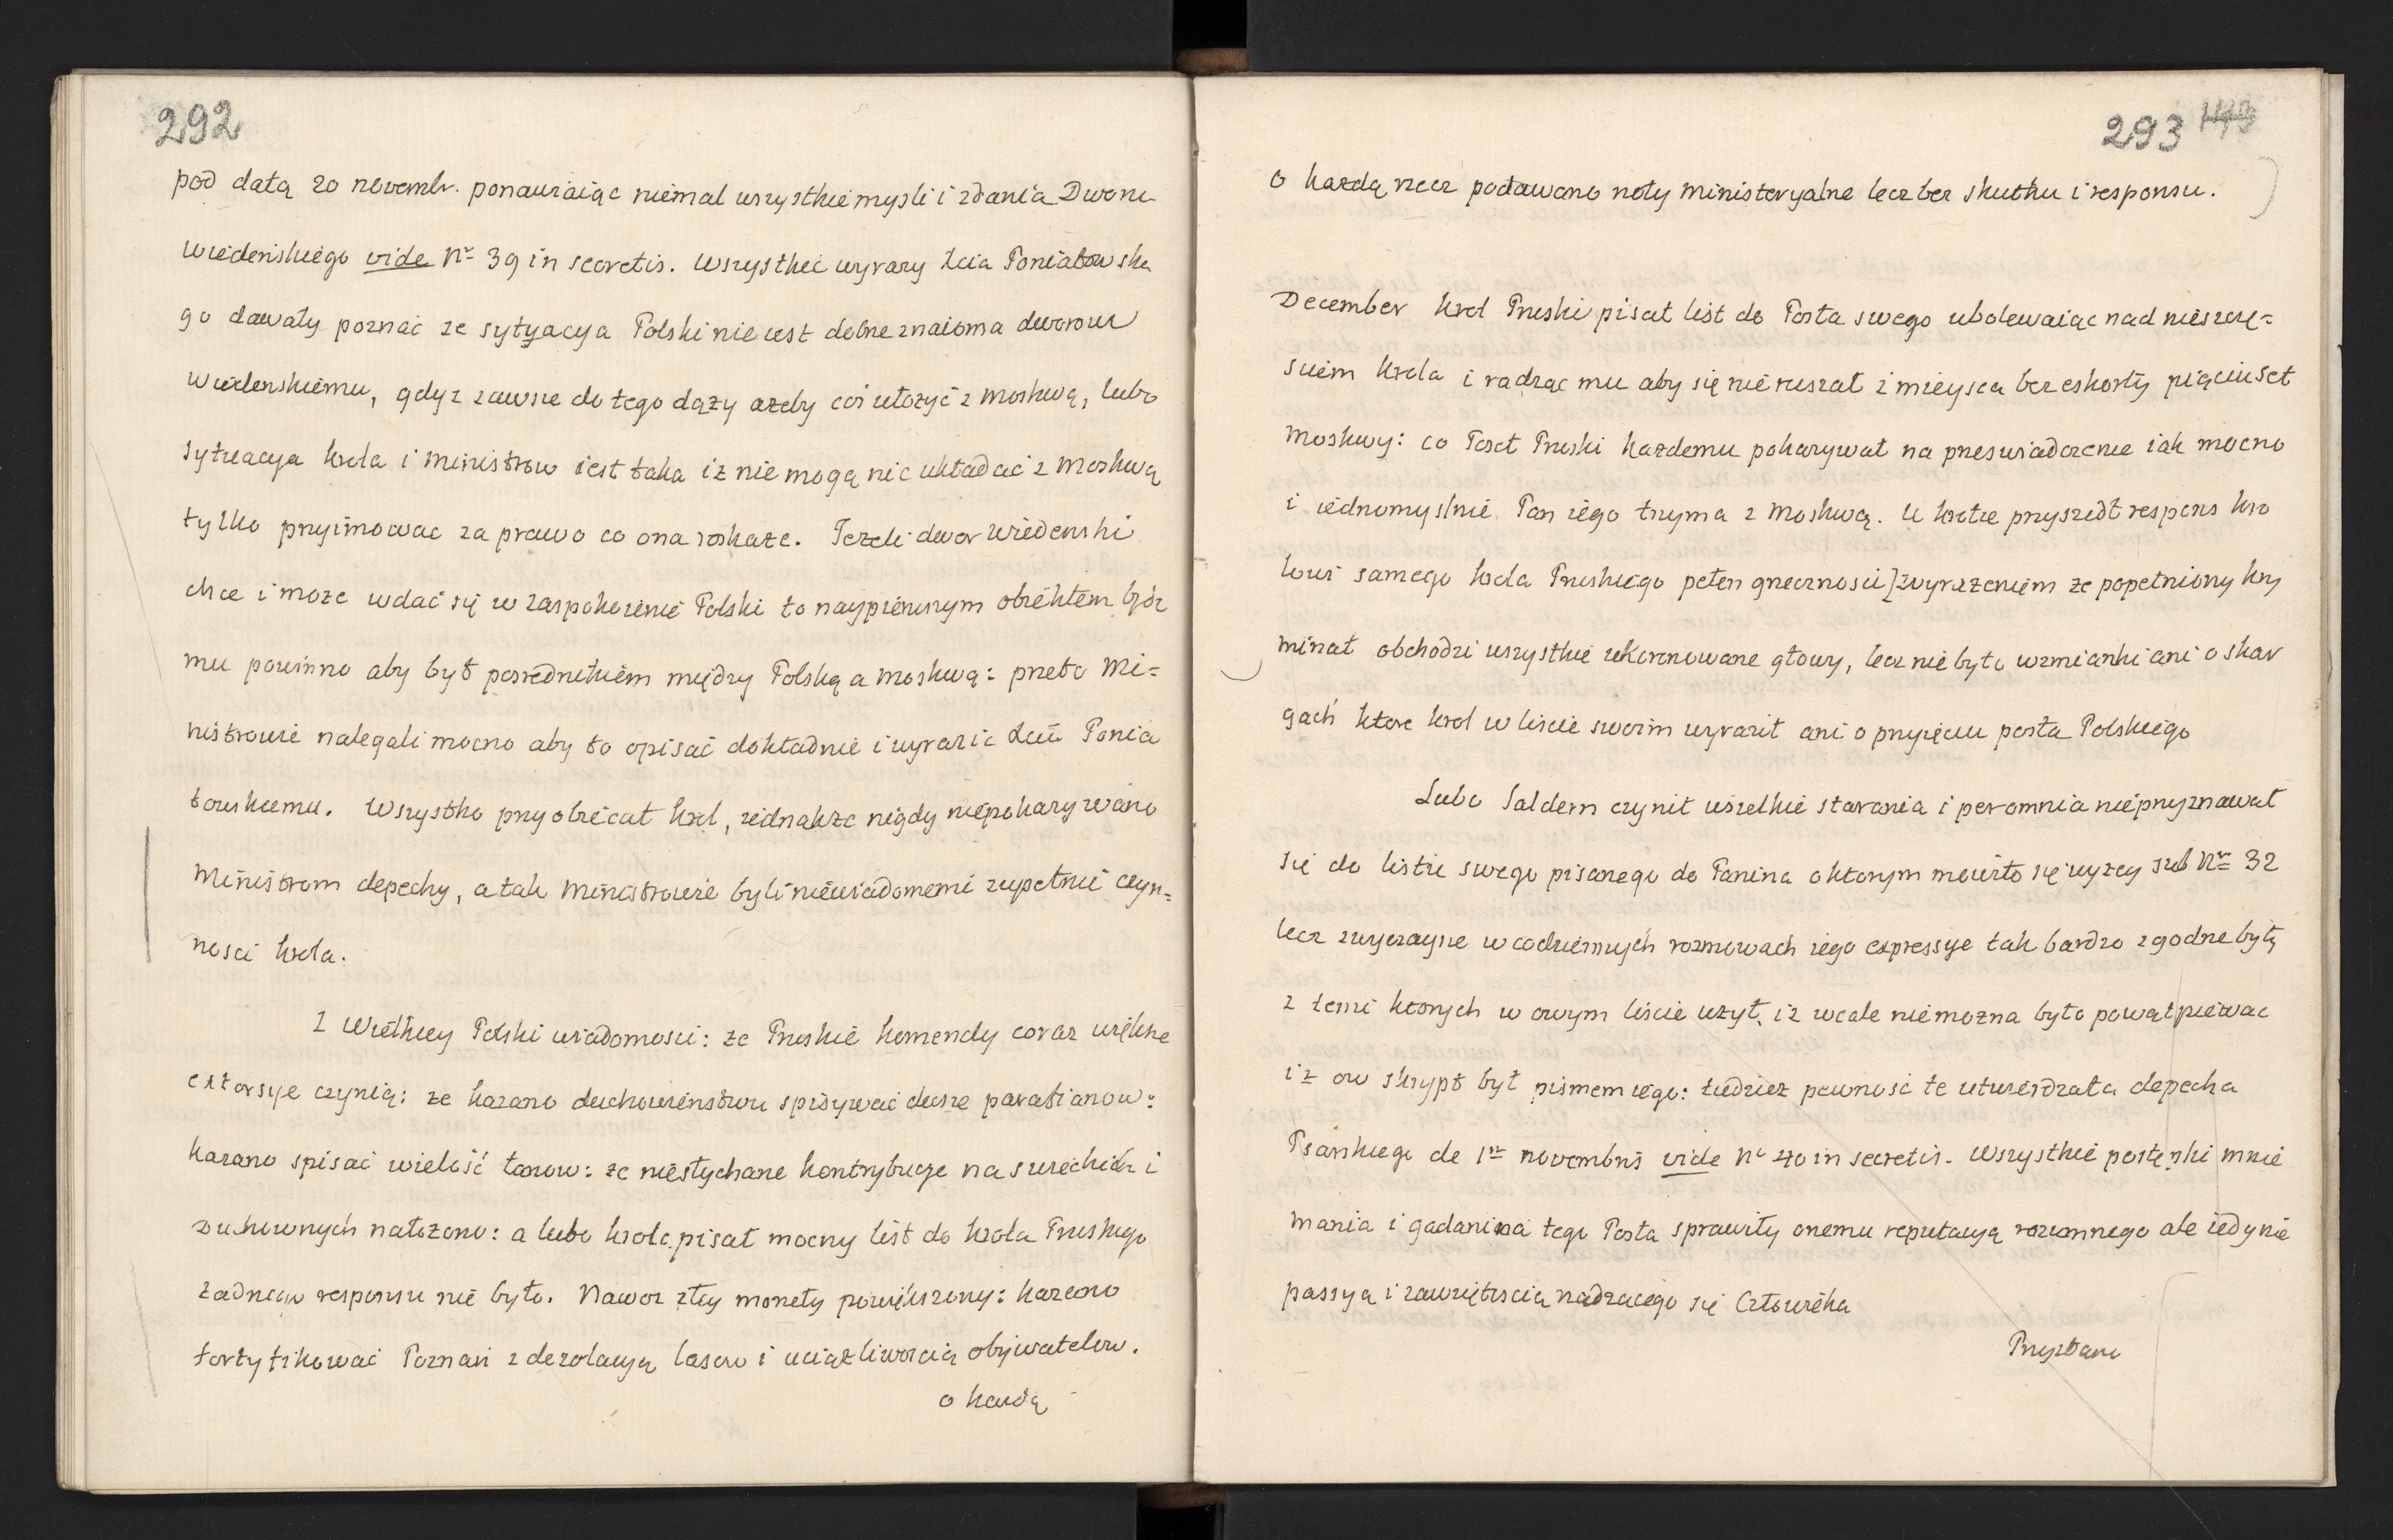 292
pod datą 20 novembr. ponawiaiąc niemal wszystkie myśli i zdania Dworu
wiedenskiego vide Nº 39 in secretis. Wszystkie wyrazy Xcia Poniatowske
go dawały poznać ze sytuacya Polski nie iest dobrze znaioma dworowi
wiedenskiemu, gdyz zawsze do tego dązy azeby coś ułozyć z Moskwą, lubo
sytuacya krola i Ministrow iest taka iz nie mogą nic układać z Moskwą
tylko przyimowac za prawo co ona roskaze. Jezeli dwor Wiedenski
chce i moze wdać się w zaspokoienie Polski to naypierwszym obiektem bydz
mu powinno aby był posrednikiem między Polską a Moskwą: przeto Mi=
nistrowie nalegali mocno aby to opisać dokładnie i wyrazic Xciu Ponia
towskiemu. Wszystko przyobiecał krol, iednakze nigdy niepokazywano
Ministrom depechy, a tak Ministrowie byli niewiadomemi zupełnie czyn=
nosci krola.
Z Wielkiey Polski wiadomosci: ze Pruskie komendy coraz większe
extorsye czynią: ze kazano duchowieństwu spisywać dusze parafianow:
kazano spisać wielość łanow: ze niesłychane kontrybucye na swieckich i
Duchownych nałozono: a lubo krol pisał mocny list do krola Pruskiego
zadnego responsu nie było. Nawoz złey monety powiększony: kazano
fortyfikować Poznań z dezolacyą lasow i uciązliwoscią obywatelow.
o kazdą
293 143
o kazdą rzecz podawano noty ministeryalne lecz bez skutku i responsu.
December krol Pruski pisał list do Posła swego ubolewaiąc nad nieszczę=
sciem krola i radząc mu aby się nie ruszał z mieysca bez eskorty pięciuset
Moskwy: co Poseł Pruski kazdemu pokazywał na przeswiadczenie iak mocno
i iednomyslnie Pan iego trzyma z Moskwą. W krotce przyszedł respons kro
lowi samego krola Pruskiego pełen grzecznosci z wyrazeniem ze popełniony kry
minał obchodzi wszystkie ukoronowane głowy, lecz nie było wzmianki ani o skar
gach ktore krol w liscie swoim wyraził ani o przyięciu posła Polskiego
Lubo Saldern czynił wszelkie starania i per omnia nieprzyznawał
się do listu swego pisanego do Panina o ktorym mowiło się wyzey sub Nº 32
lecz zwyczayne w codziennych rozmowach iego expressye tak bardzo zgodne były
z temi ktorych w owym liscie uzył, iz wcale niemozna było powątpiewac
iz ow skrypt był pismem iego: tudziez pewność te utwierdzała depecha
Psarskiego de 1ma novembris vide Nº 40 in secretis. Wszystkie postępki mnie
mania i gadanina tego Posła sprawiły onemu reputacyą rozumnego ale iedynie
passyą i zawziętoscią rządzącego się Człowieka
Przysłano